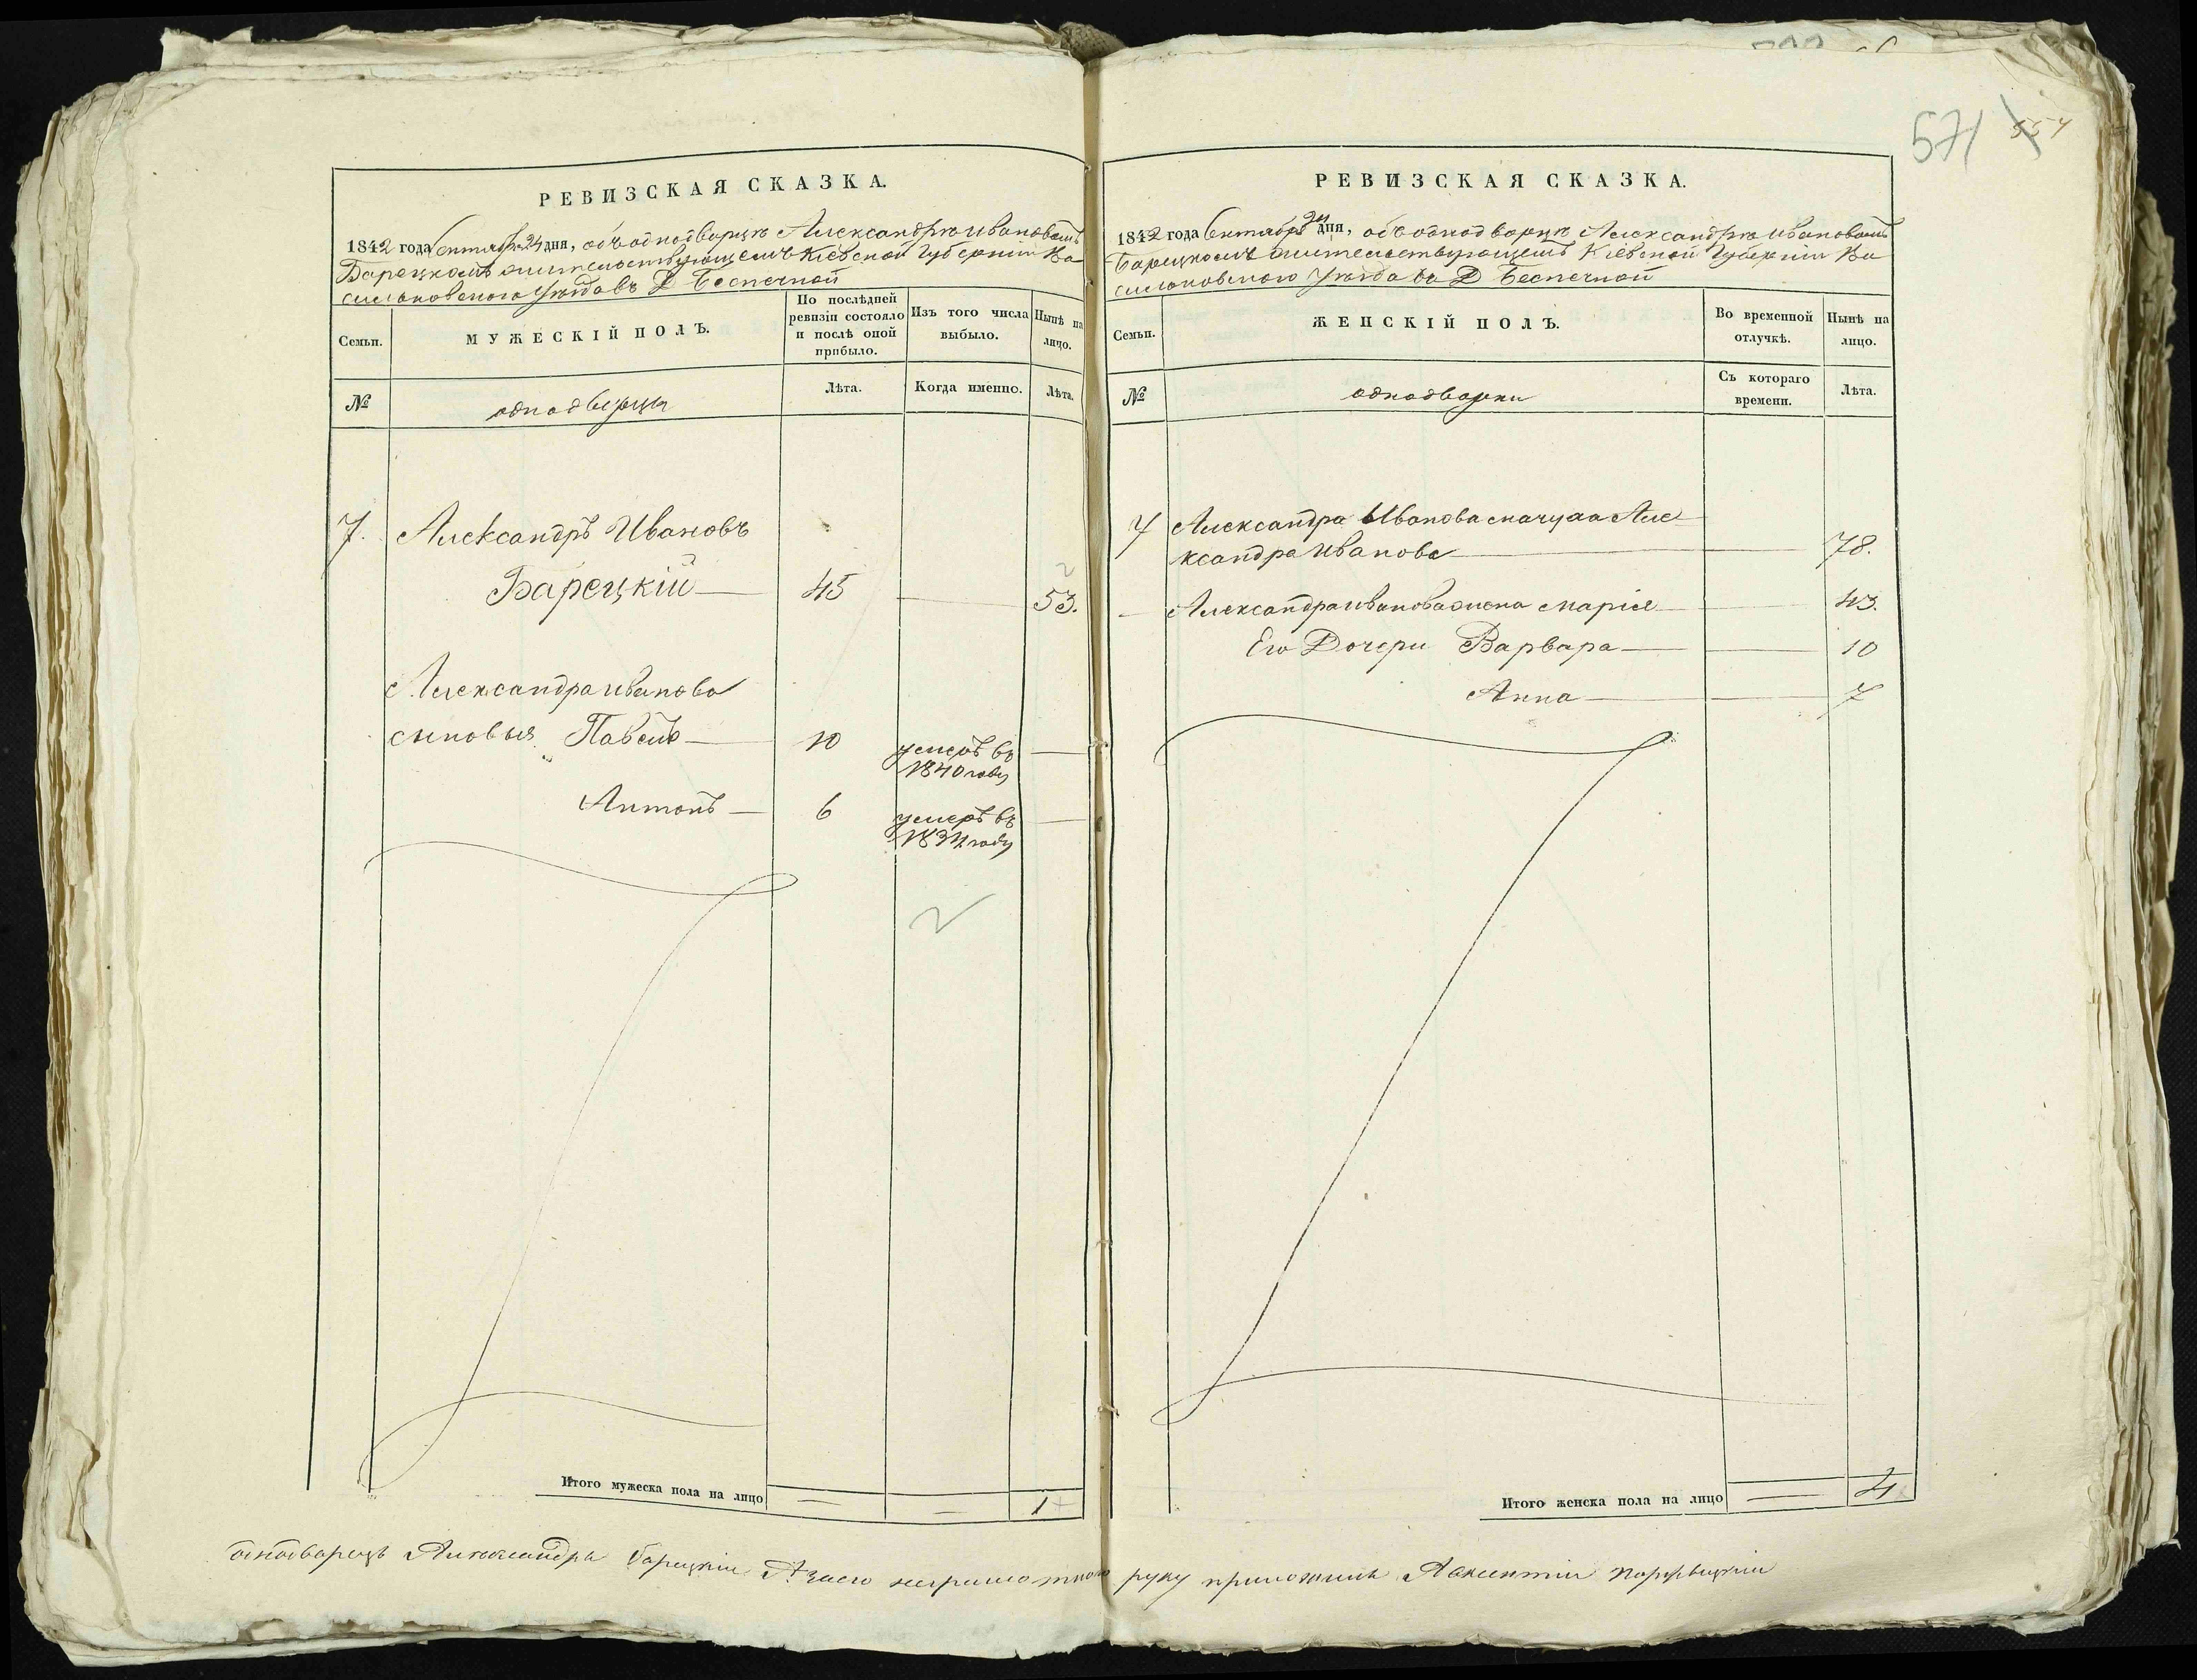 571
РЕВИЗСКАЯ СКАЗКА.
1842 года сентября 24 дня, объ однодворцѣ Александрѣ Ивановомъ
Барецкомъ жительствующемъ Кіевской Губерніи Ва-
сильковского Уѣзда въ Д Беспечной
Семьи.
МУЖЕСКІЙ ПОЛЪ.
По послѣдней ревизіи состояло и послѣ оной прибыло.
Изъ того числа выбыло.
Нынѣ на лицо.
№
однодворцы
Лѣта.
Когда именно.
Лѣта.
7. Александръ Ивановъ
Барецкій 45 53.
Александра Иванова
сыновья Павелъ 10 умеръ въ 1840 году
Антонъ 6 умеръ въ году
Итого мужеска пола на лицо 1
РЕВИЗСКАЯ СКАЗКА.
1842 года сентября 24 дня, объ однодворцѣ Александрѣ Ивановомъ
Барецкомъ жительствующемъ Кіевской Губерніи Ва
сильковского Уѣзда въ Д Беспечной
Семьи.
ЖЕНСКІЙ ПОЛЪ.
Во временной отлучкѣ.
Нынѣ на лицо.
№
однодворки
Съ котораго времени.
Лѣта.
7 Александра Иванова мачуха Але
ксандра Иванова 78.
Александра Иванова жена Марія 43.
Его Дочери Варвара 10
Анна 7
Итого женска пола на лицо 4
однодворецъ Барецкій А заего неграмотного руку приложилъ